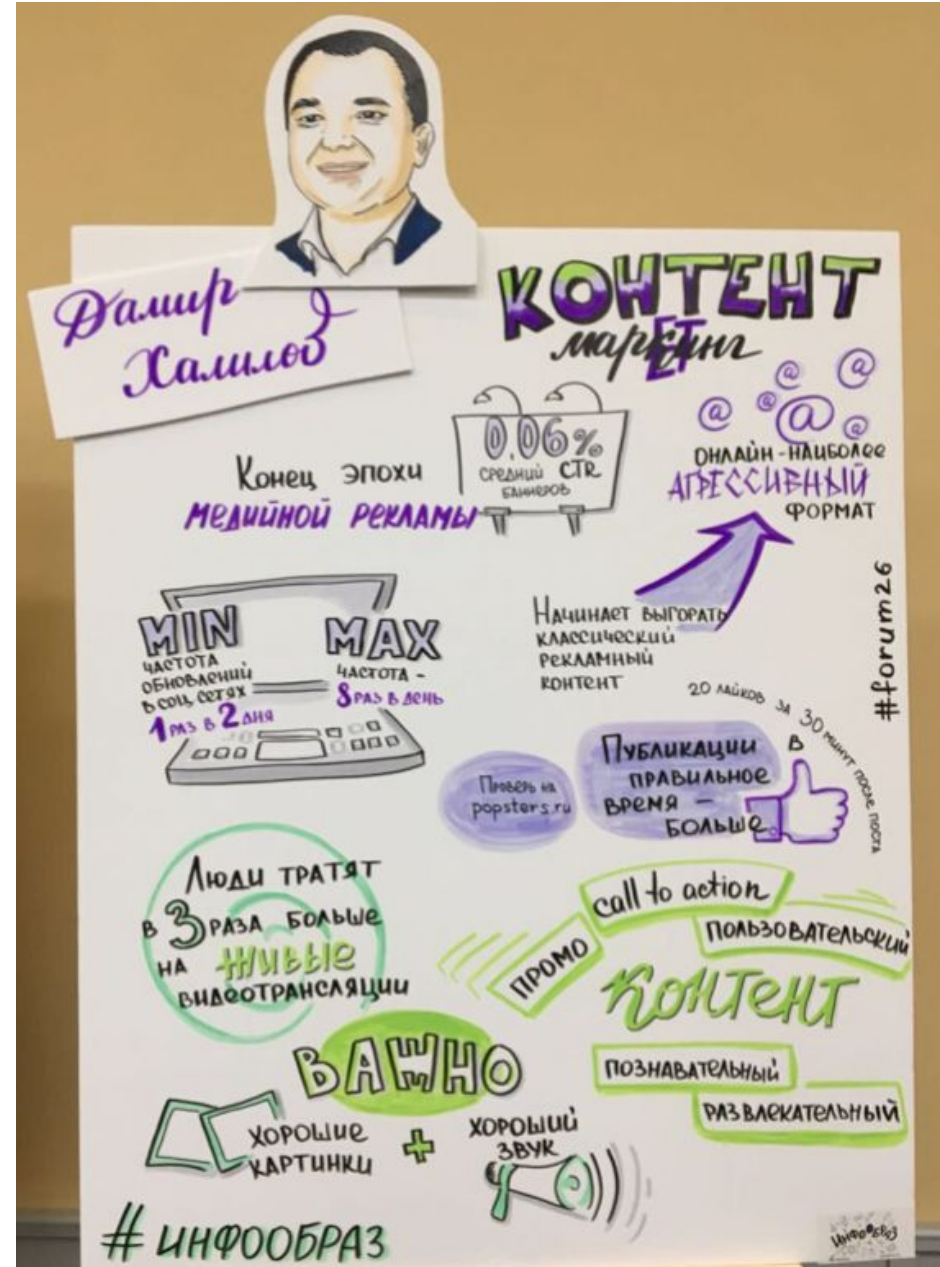 Дамир
Халилов
КОНТЕНТ
маркЕТинг
Конец эпохи
МЕДИЙНОЙ РЕКЛАМЫ
0,06%
СРЕДНИЙ CTR
БАННЕРОВ
ОНЛАЙН - НАИБОЛЕЕ
АГРЕССИВНЫЙ
ФОРМАТ
НАЧИНАЕТ ВЫГОРАТЬ
КЛАССИЧЕСКИЙ
РЕКЛАМНЫЙ
КОНТЕНТ
#forum26
MIN
ЧАСТОТА
ОБНОВЛЕНИЙ
В СОЦ. СЕТЯХ
1 РАЗ В 2 ДНЯ
MAX
ЧАСТОТА -
8 РАЗ В ДЕНЬ
20 ЛАЙКОВ ЗА 30 МИНУТ ПОСЛЕ ПОСТА
ПУБЛИКАЦИИ В
ПРАВИЛЬНОЕ
ВРЕМЯ —
БОЛЬШЕ
Проверь на
popsters.ru
ЛЮДИ ТРАТЯТ
В 3 РАЗА БОЛЬШЕ
НА ЖИВЫЕ
ВИДЕОТРАНСЛЯЦИИ
call to action
ПРОМО
ПОЛЬЗОВАТЕЛЬСКИЙ
КОНТЕНТ
ПОЗНАВАТЕЛЬНЫЙ
РАЗВЛЕКАТЕЛЬНЫЙ
ВАЖНО
ХОРОШИЕ
КАРТИНКИ
+
ХОРОШИЙ
ЗВУК
#ИНФООБРАЗ
ИНФООБРАЗ